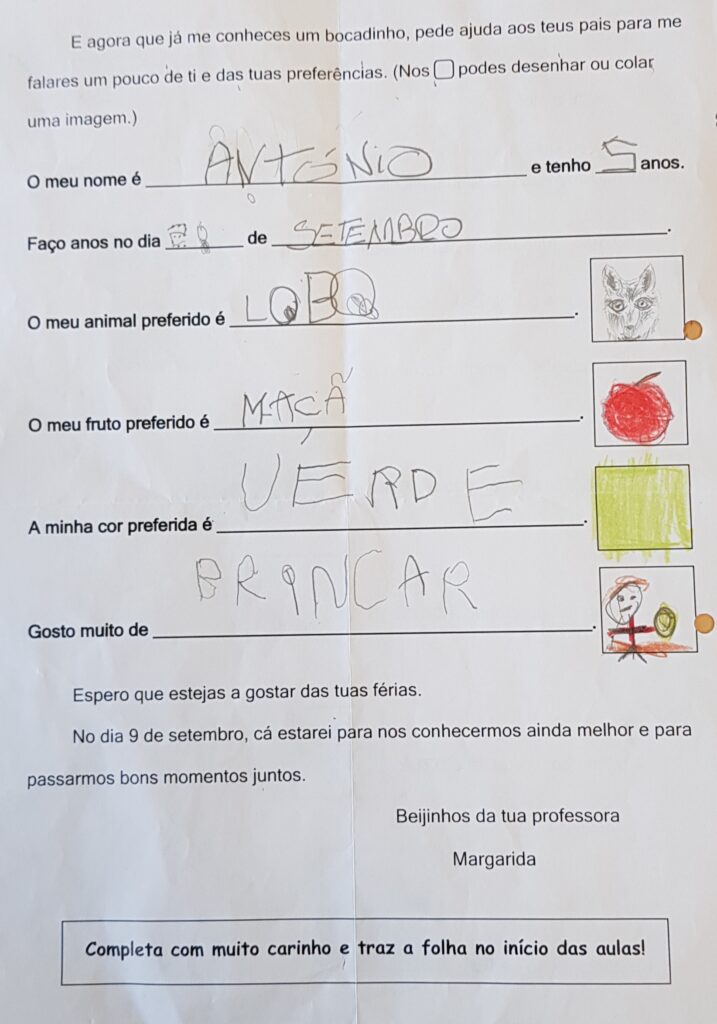 E agora que já me conheces um bocadinho, pede ajuda aos teus pais para me
falares um pouco de ti e das tuas preferências. (Nos podes desenhar ou colar
uma imagem.)
O meu nome é ANTÓNIO e tenho 5 anos.
Faço anos no dia de SETEMBRO.
O meu animal preferido é LOBO.
O meu fruto preferido é MAÇÃ.
A minha cor preferida é VERDE.
Gosto muito de BRINCAR.
Espero que estejas a gostar das tuas férias.
No dia 9 de setembro, cá estarei para nos conhecermos ainda melhor e para
passarmos bons momentos juntos.
Beijinhos da tua professora
Margarida
Completa com muito carinho e traz a folha no início das aulas!